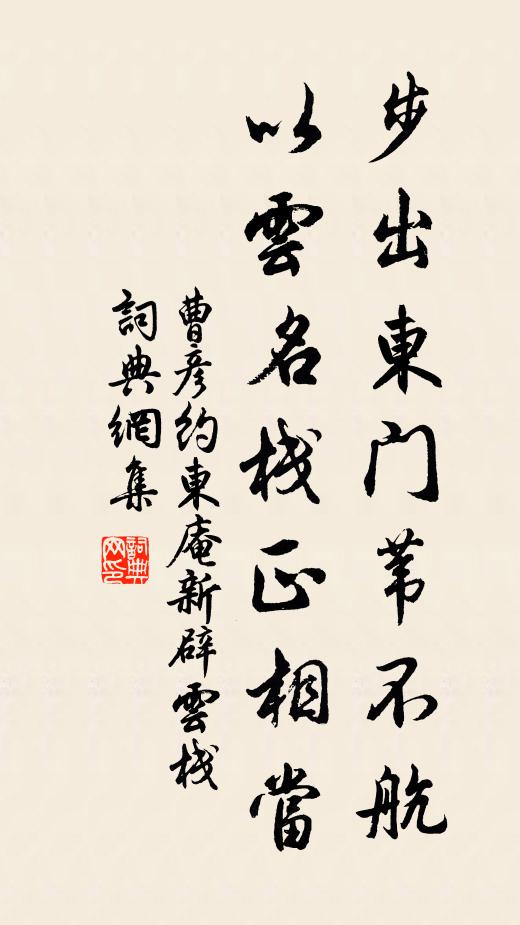 步出東門苇不航
以雲名栈正相當
曹彦约東庵新辟雲栈
詞典網集
詞典网印